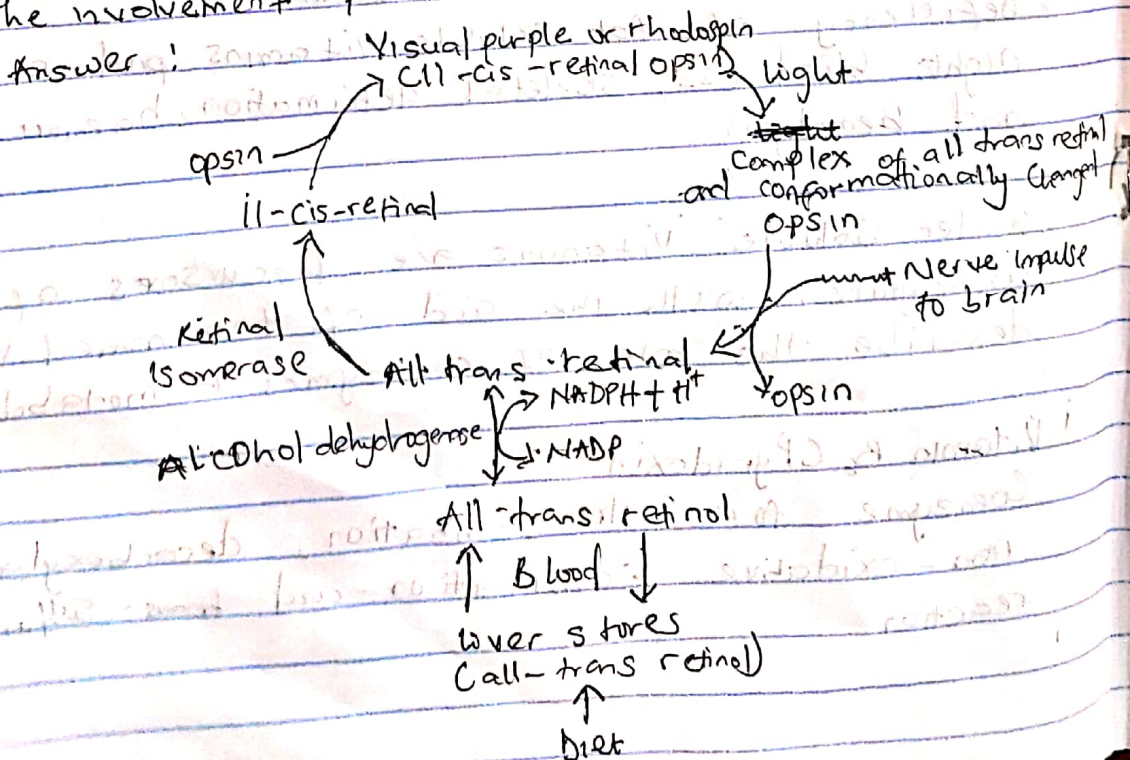 he involvement
Answer:
Visual purple or rhodospin
C11-cis-retinal opsin)
light
Complex of all trans retinal
and conformationally changed
opsin
opsin
11-cis-retinal
Nerve impulse
to brain
Retinal
isomerase
All trans retinal
NADPH + H+
opsin
Alcohol dehydrogenase
NADP
All-trans retinol
Blood
Liver stores
(all-trans retinol)
Diet